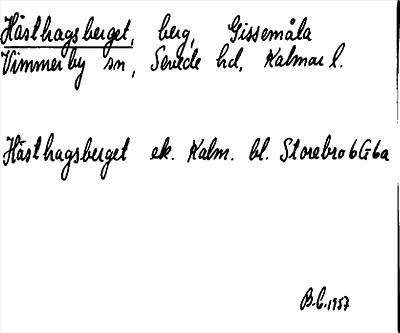 Hästhagsberget, berg, Gissemåla
Vimmerby sn, Sevede hd, Kalmar l.
Hästhagsberget ek. Kalm. bl. Storebro 6G6a
B.C. 1957